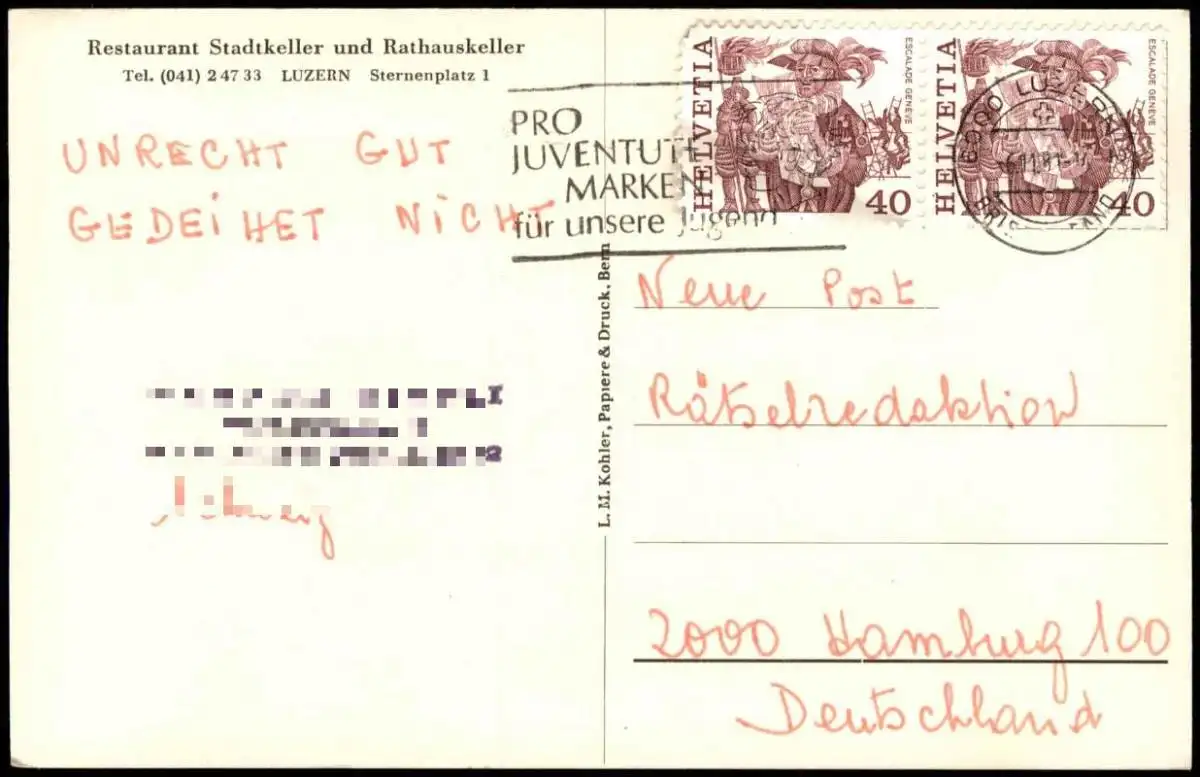 Restaurant Stadtkeller und Rathauskeller
Tel. (041) 2 47 33 LUZERN Sternenplatz 1
UNRECHT GUT
GEDEIHET NICHT
PRO
JUVENTUTE
MARKEN
für unsere Jugend
HELVETIA
ESCALADE GENÈVE
40
HELVETIA
ESCALADE GENÈVE
40
6000 LUZERN
L. M. Kohler, Papiere & Druck, Bern
Neue Post
Rätselredaktion
2000 Hamburg 100
Deutschland